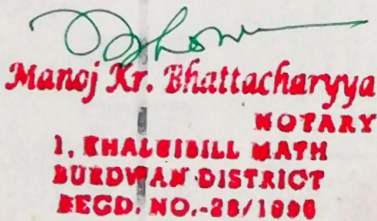 Manoj Kr. Bhattacharyya
NOTARY
1, KHALUIBILL MATH
BURDWAN DISTRICT
REGD. NO.-28/1996